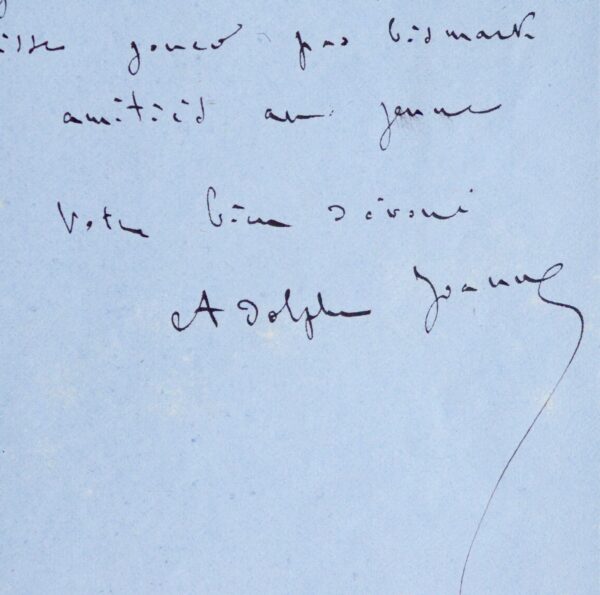 jouer par bismark
amitiés au jeune
Votre bien dévoué
Adolphe Joanne